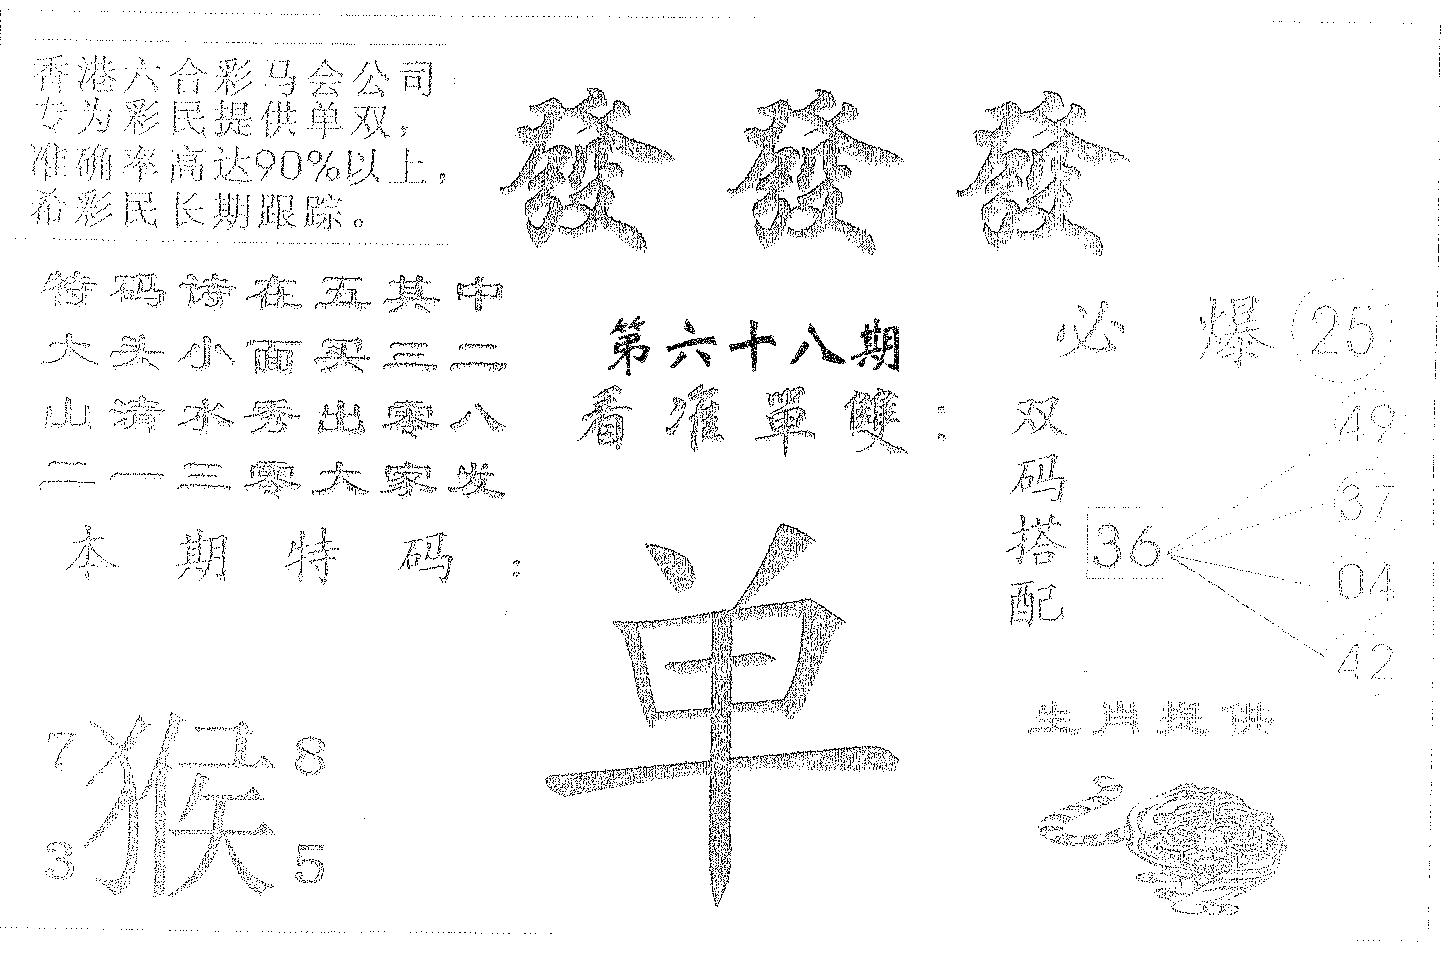 香港六合彩马会公司
专为彩民提供单双，
准确率高达90%以上，
希彩民长期跟踪。
發 發 發
特码诗在五其中
大头小面买三二
山清水秀出零八
二一三零大家发
本期特码：
第六十八期
看准單雙：
单
必爆 25
双码搭配
36
49
37
04
42
生肖提供
7 猴 8
3 5